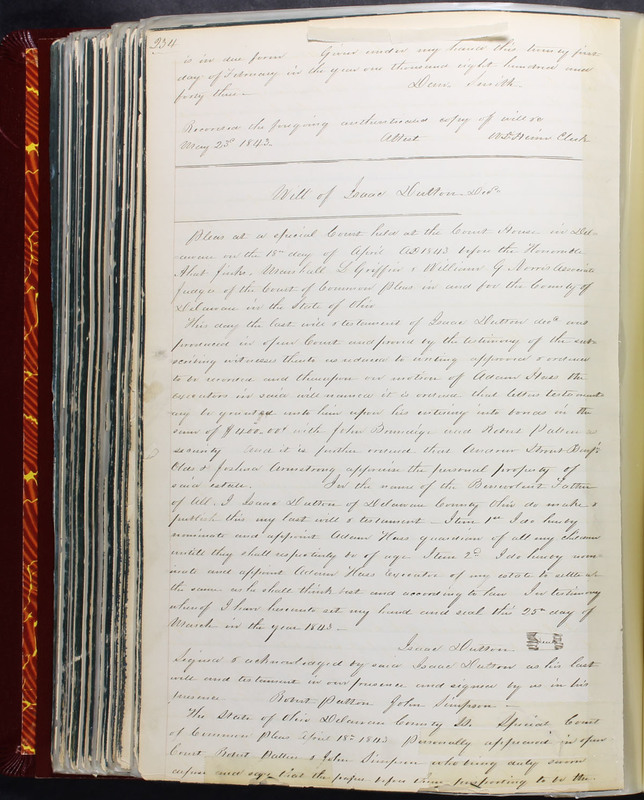 234
is in due form Given under my hand this twenty first
day of February in the year one thousand eight hundred and
forty three —
Danl Smith
Recorded the foregoing authenticated copy of will &c
May 23d 1843. Attest Clerk
Will of Isaac Hutton Decd
Pleas at a special Court held at the Court House in Del-
aware on the 18th day of April AD 1843 before the Honorable
Marshall L Griffin & William G Norris Associate
Judges of the Court of Common Pleas in and for the County of
Delaware in the State of Ohio
This day the last will & testament of Isaac Hutton decd was
produced in open Court and proved by the testimony of the sub-
scribing witnesses thereto reduced to writing approved & ordered
to be recorded and thereupon on motion of Adam Hass the
executor in said will named it is ordered that letters testament-
ary be granted unto him upon his entering into bonds in the
sum of $400.00 with John Brundige and Robert Patton as
security and it is further ordered that Andrew Benjn
Olds & Joshua Armstrong appraise the personal property of
said estate. In the name of the Benevolent Father
of All. I Isaac Hutton of Delaware County Ohio do make &
publish this my last will & testament — Item 1st I do hereby
nominate and appoint Adam Hass guardian of all my children
untill they shall respectively be of age Item 2d I do hereby nom-
inate and appoint Adam Hass Executor of my estate to settle
the same as he shall think best and according to law In testimony
whereof I have hereunto set my hand and seal this 25th day of
March in the year 1843 —
Isaac Hutton seal
Signed & acknowledged by said Isaac Hutton as his last
will and testament in our presence and signed by us in his
presence Robert Patton John Simpson —
The State of Ohio Delaware County SS. Special Court
of Common Pleas April 18th 1843 Personally appeared in open
Court Robert Patton & John Simpson who being duly sworn
depose and say that the paper before them purporting to be the